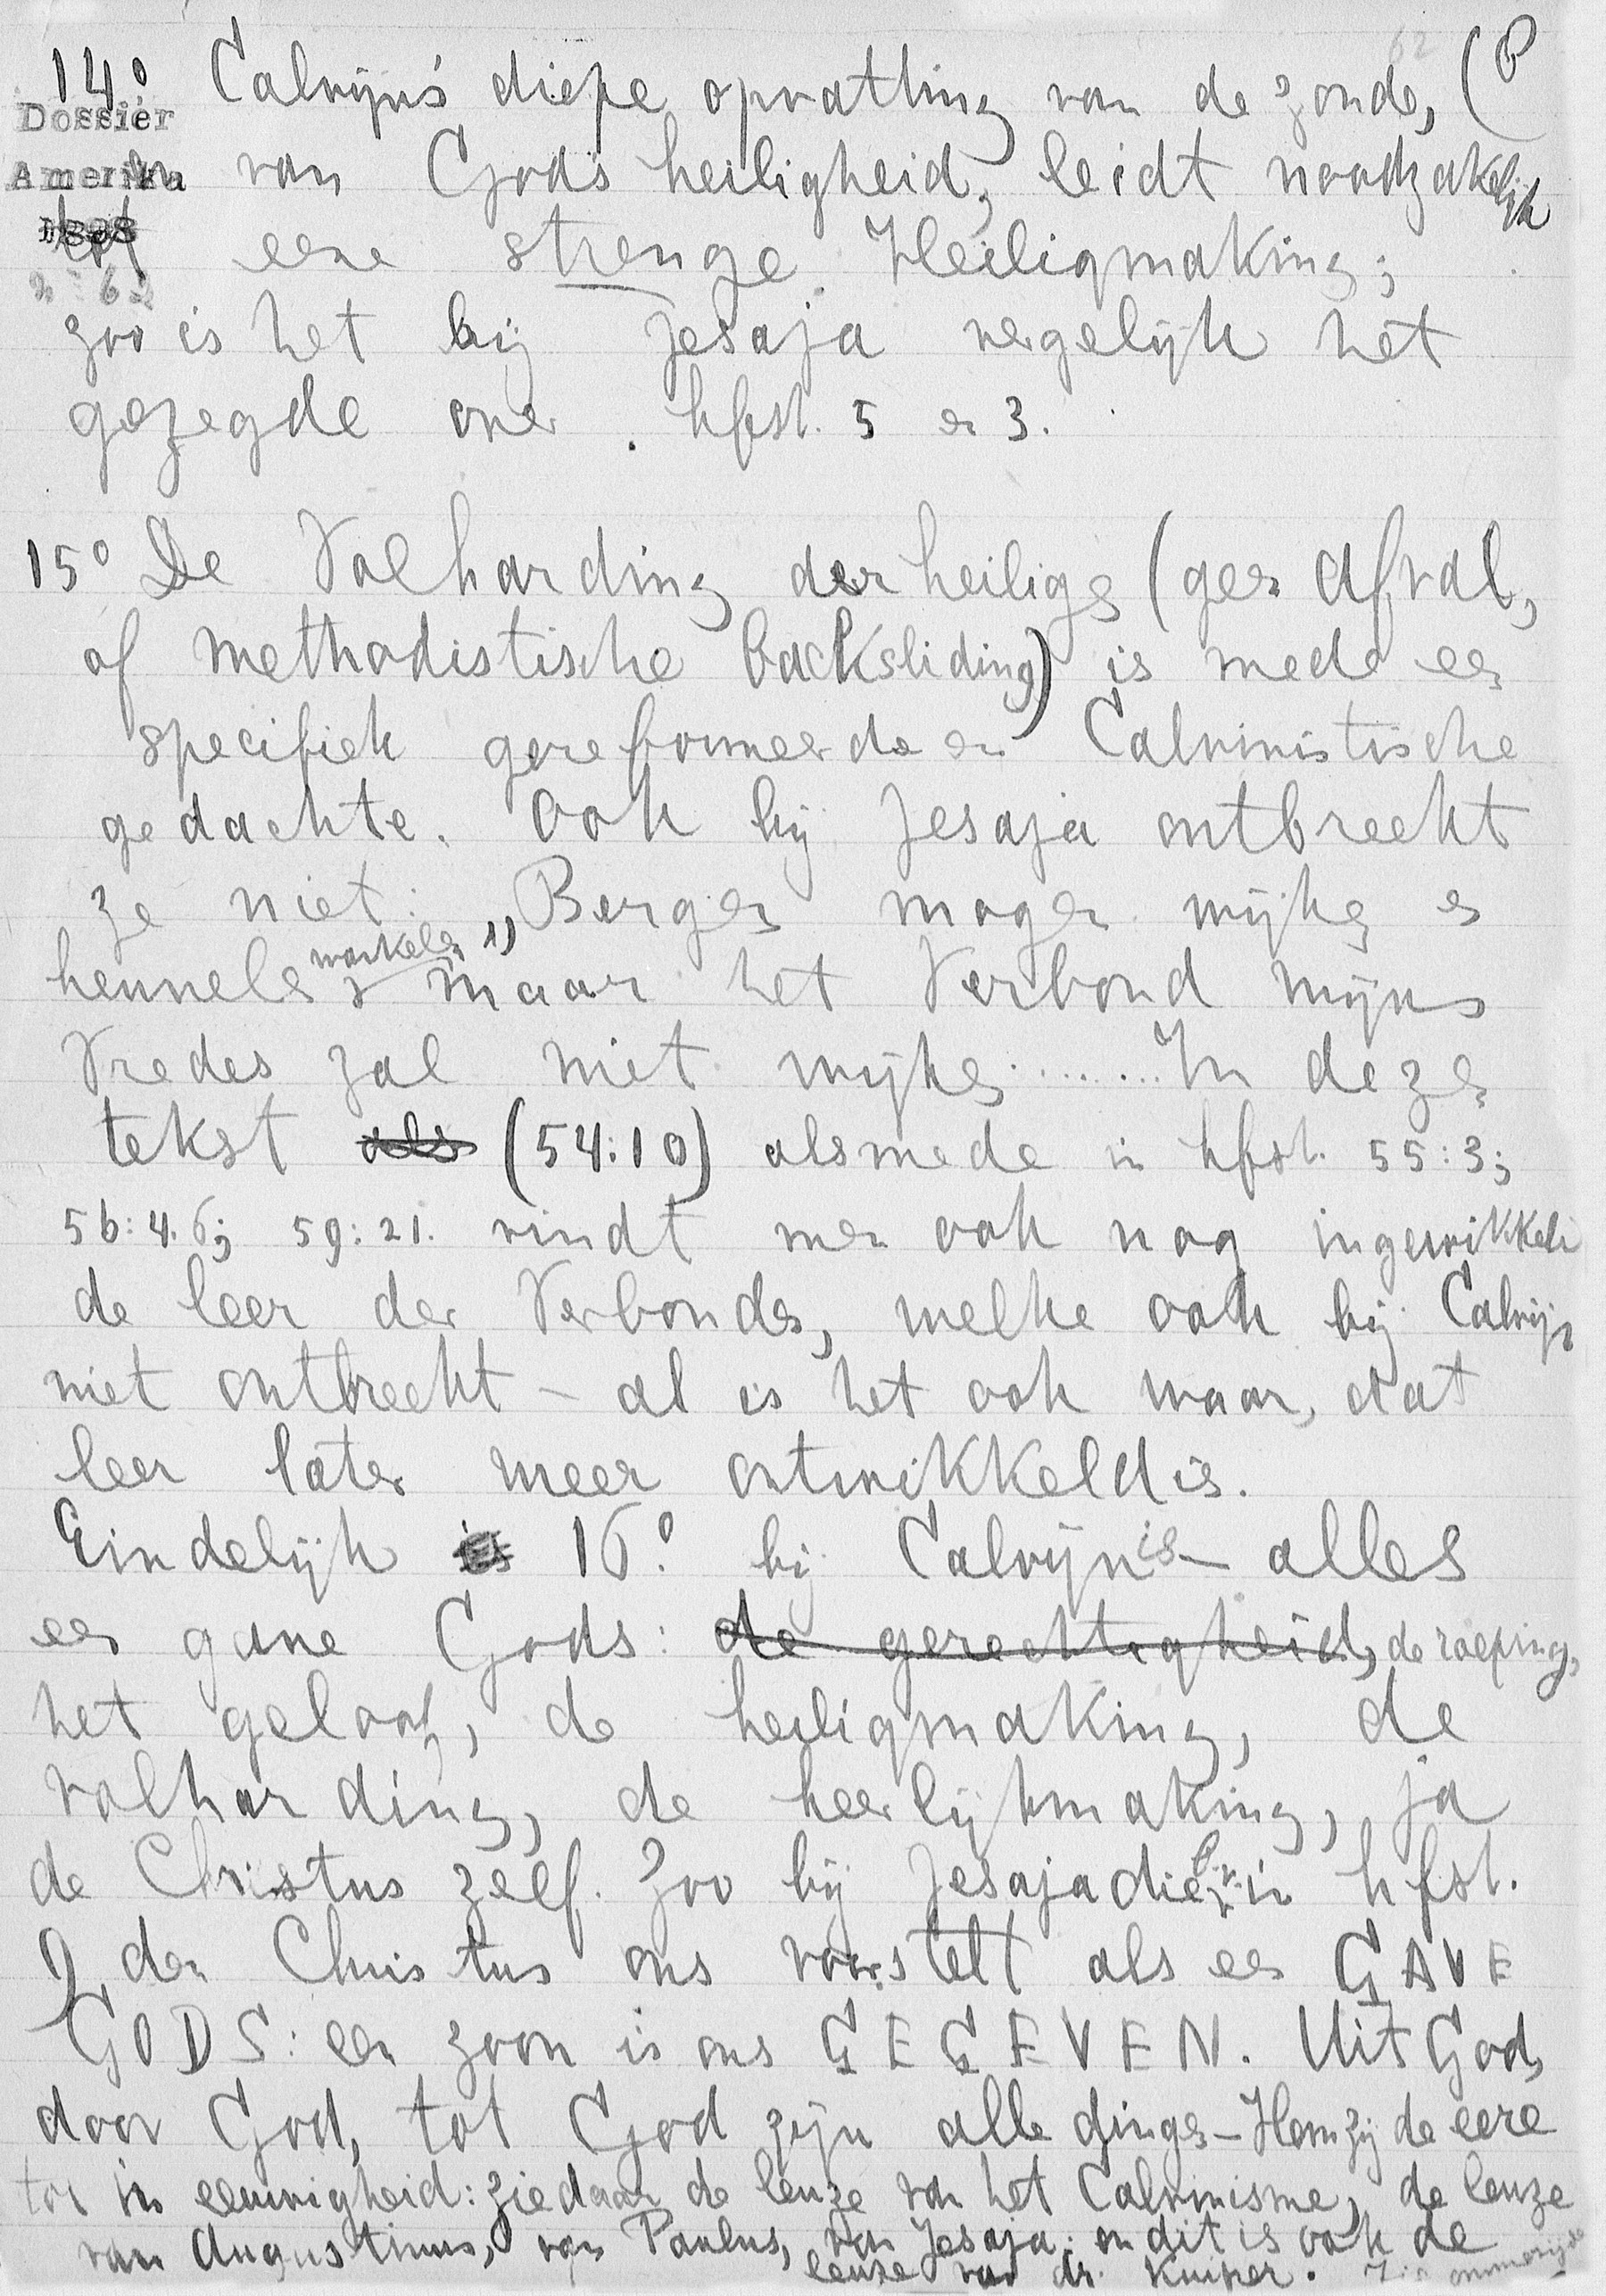 62
14° Calvijns diepe opvatting van de zonde, (
Dossier
Amerika van Gods heiligheid, leidt noodzakelijk
1898
tot eene strenge Heiligmaking;
zoo is het bij Jesaja vergelijk het
gezegde over hfst. 5 en 3.
15° De Volharding der heilige (gen Afval,
of methodistische backsliding) is mede een
specifiek gereformeerde en Calvinistische
gedachte. Ook bij Jesaja ontbreekt
ze niet: „Bergen mogen wijken en
heuvels wankelen maar het Verbond mijns
Vredes zal niet wijken........ In dezen
tekst als (54:10) alsmede in hfst. 55:3;
56:4.6; 59:21. vindt men ook nog ingewikkeld
de leer der Verbonds, welke ook bij Calvijn
niet ontbreekt – al is het ook waar, dat
leer later meer ontwikkeld is.
Eindelijk is 16° bij Calvijn is – alles
een gave Gods: de gerechtigheid, de roeping,
het geloof, de heiligmaking, de
volharding, de heerlijkmaking, ja
de Christus zelf. Zoo bij Jesaja die in hfst.
9 den Christus ons voorstelt als een GAVE
GODS: een zoon is ons GEGEVEN. Uit God,
door God, tot God zijn alle dingen – Hem zij de eere
tot in eeuwigheid: ziedaar de leuze van het Calvinisme, de leuze
van Augustinus, van Paulus, van Jesaja: en dit is ook de
leuze van dr. Kuiper.